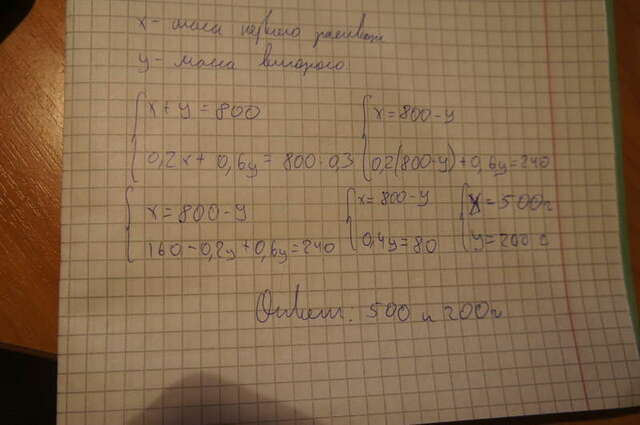 x - масса первого раствора
y - масса второго
x + y = 800
0,2x + 0,6y = 800 · 0,3
x = 800 - y
0,2(800-y) + 0,6y = 240
x = 800 - y
160 - 0,2y + 0,6y = 240
x = 800 - y
0,4y = 80
x = 500г
y = 200г
Ответ: 500 и 200г